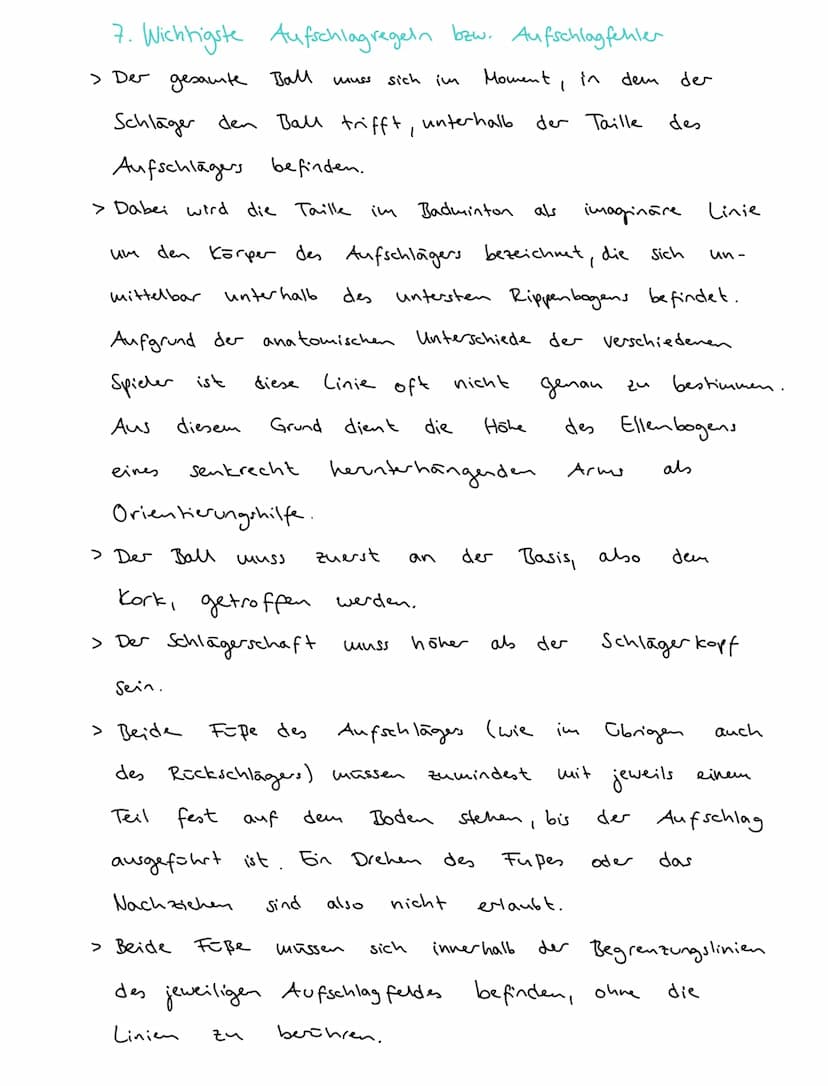 7. Wichtigste Aufschlagregeln bzw. Aufschlagfehler
> Der gesamte Ball muss sich im Moment, in dem der
Schläger den Ball trifft, unterhalb der Taille des
Aufschlägers befinden.
> Dabei wird die Taille im Badminton als imaginäre Linie
um den Körper des Aufschlägers bezeichnet, die sich un-
mittelbar unterhalb des untersten Rippenbogens befindet.
Aufgrund der anatomischen Unterschiede der verschiedenen
Spieler ist diese Linie oft nicht genau zu bestimmen.
Aus diesem Grund dient die Höhe des Ellenbogens
eines senkrecht herunterhängenden Arms als
Orientierungshilfe.
> Der Ball muss zuerst an der Basis, also dem
Kork, getroffen werden.
> Der Schlägerschaft muss höher als der Schlägerkopf
sein.
> Beide Füße des Aufschlägers (wie im Übrigen auch
des Rückschlägers) müssen zumindest mit jeweils einem
Teil fest auf dem Boden stehen, bis der Aufschlag
ausgeführt ist. Ein Drehen des Fußes oder das
Nachziehen sind also nicht erlaubt.
> Beide Füße müssen sich innerhalb der Begrenzungslinien
des jeweiligen Aufschlagfeldes befinden, ohne die
Linien zu berühren.